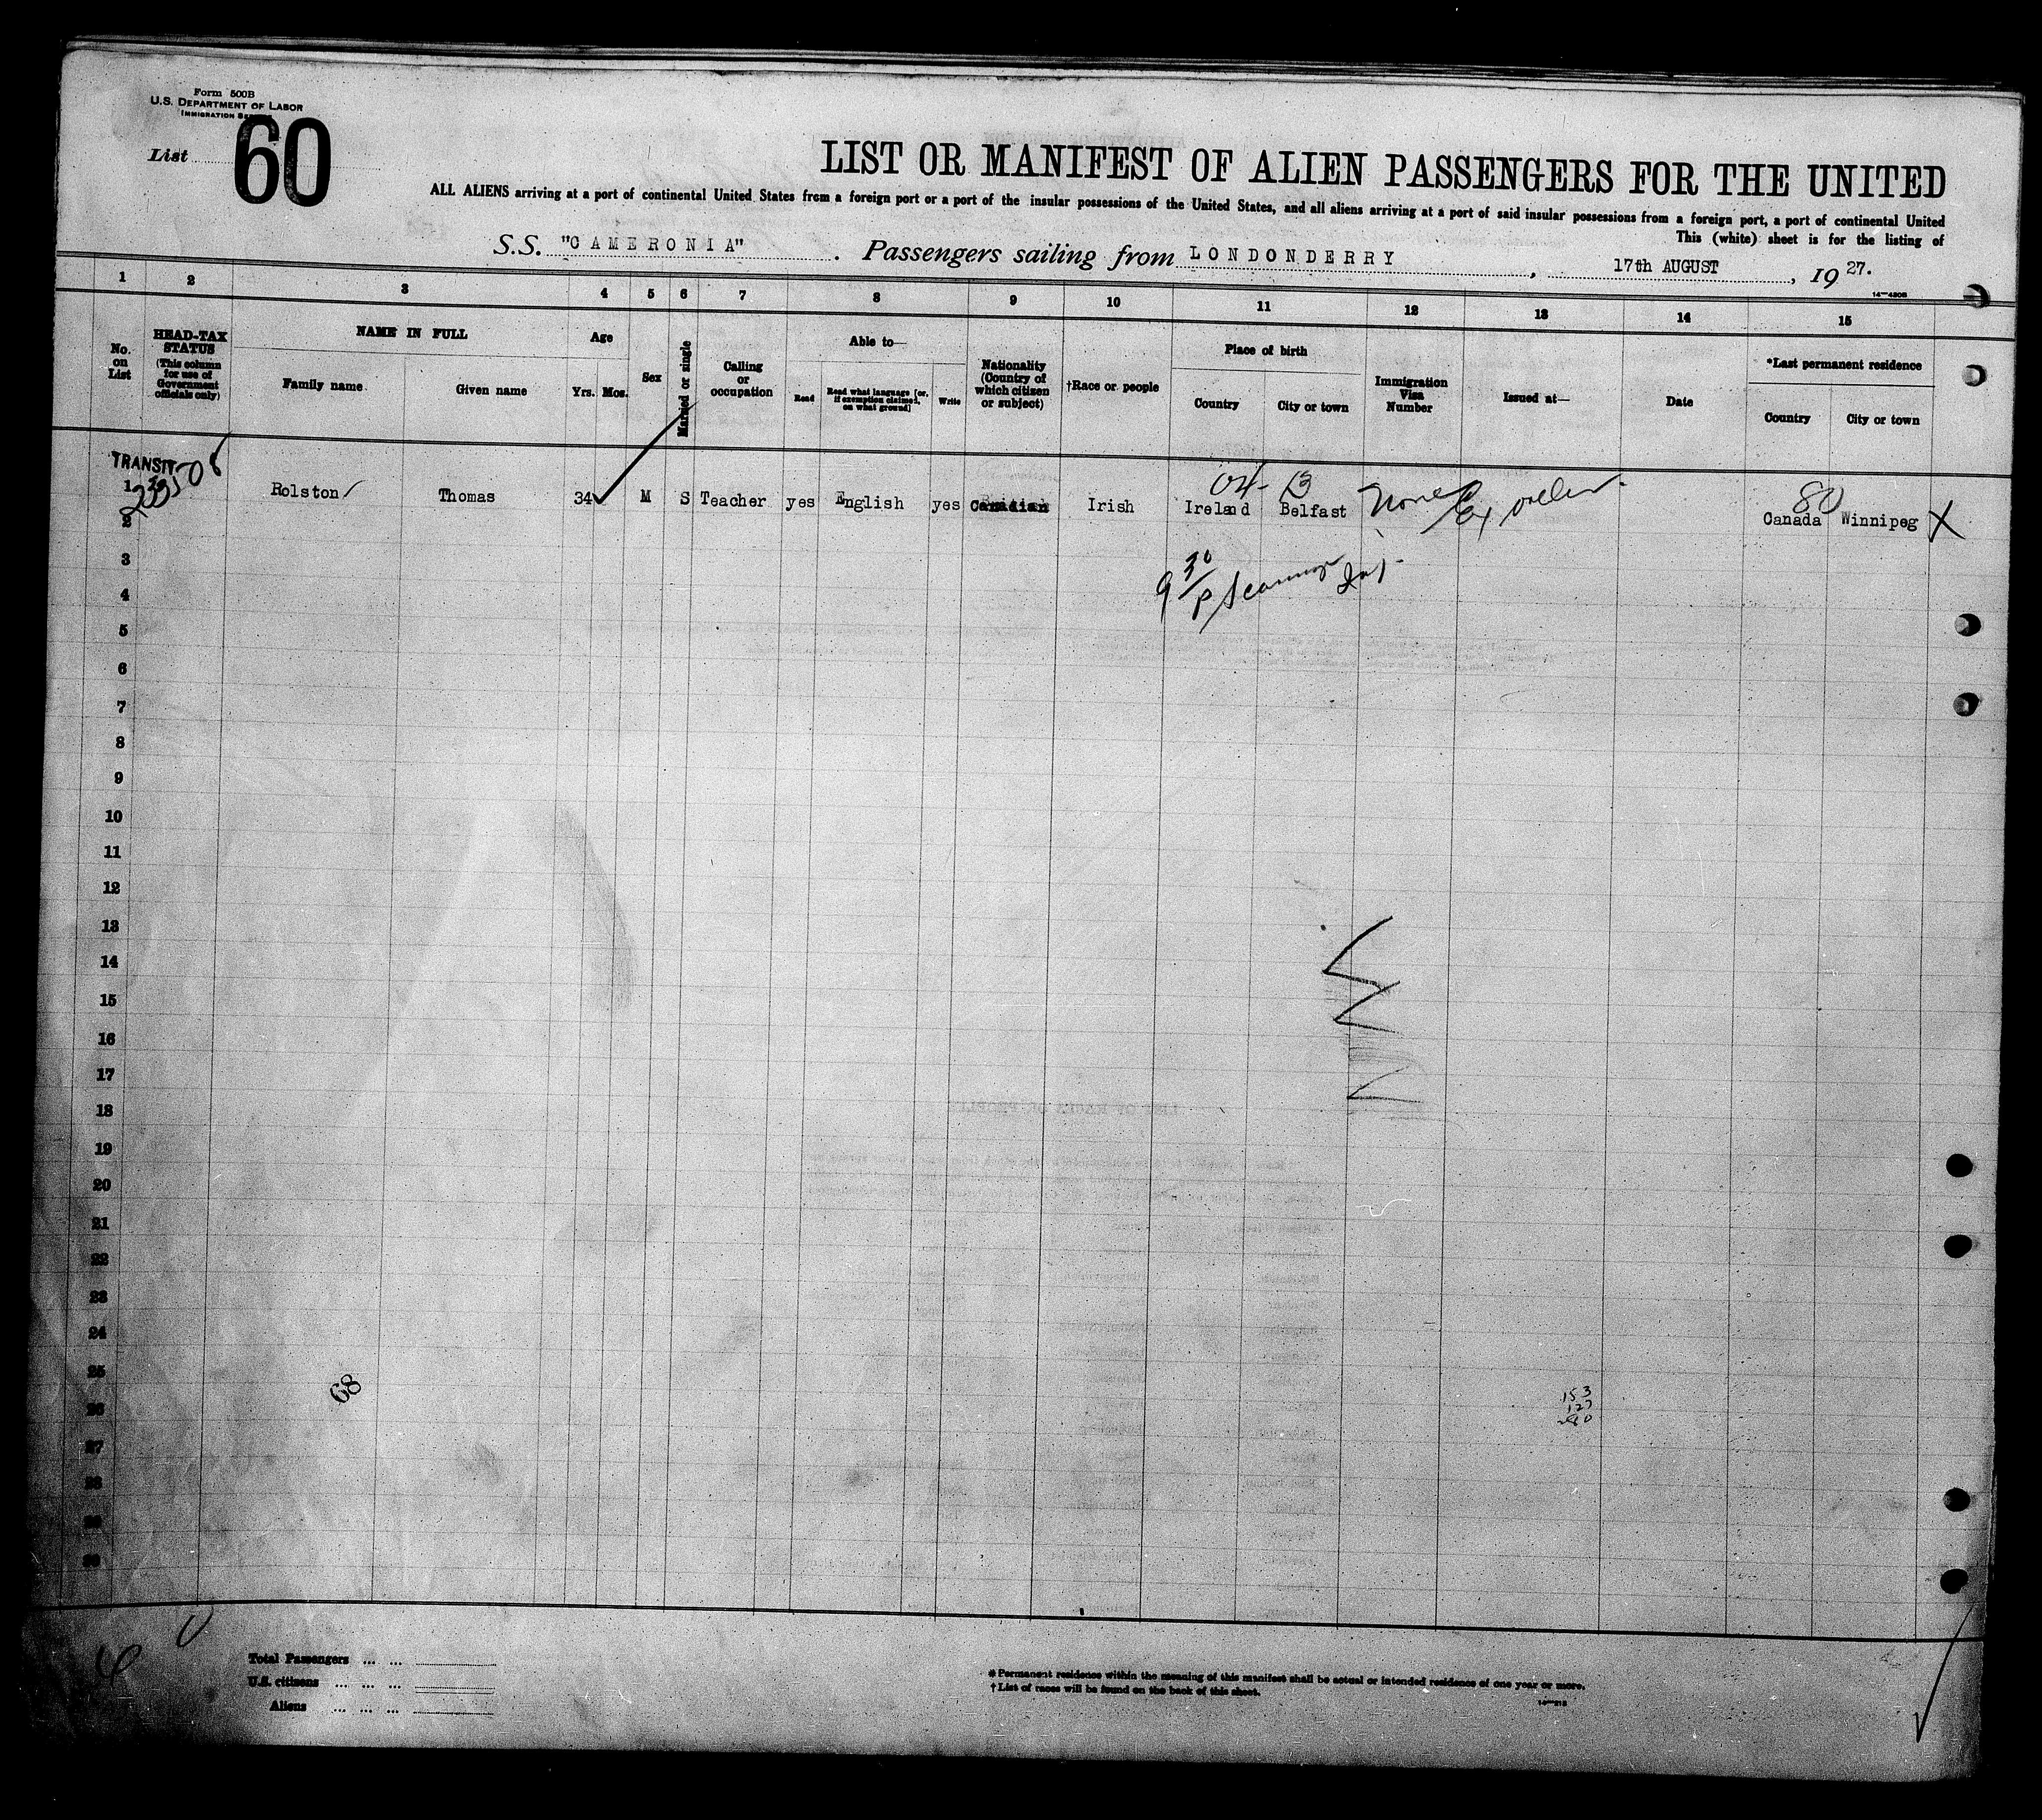 Form 500B
U.S. DEPARTMENT OF LABOR
IMMIGRATION
List 60
LIST OR MANIFEST OF ALIEN PASSENGERS FOR THE UNITED
ALL ALIENS arriving at a port of continental United States from a foreign port or a port of the insular possessions of the United States, and all aliens arriving at a port of said insular possessions from a foreign port, a port of continental United
This (white) sheet is for the listing of
S.S. "CAMERONIA". Passengers sailing from LONDONDERRY, 17th AUGUST, 1927.
14—480B
1 2 3 4 5 6 7 8 9 10 11 12 13 14 15
No. on List
HEAD-TAX STATUS
(This column for use of Government officials only)
NAME IN FULL
Family name
Given name
Age
Yrs. Mos.
Sex
Married or single
Calling or occupation
Able to—
Read
Read what language [or, if exemption claimed, on what ground]
Write
Nationality (Country of which citizen or subject)
†Race or people
Place of birth
Country
City or town
Immigration Visa Number
Issued at—
Date
*Last permanent residence
Country
City or town
TRANSIT
04 B
80
1 Rolston Thomas 34 M S Teacher yes English yes Canadian Irish Ireland Belfast None Canada Winnipeg X
2
3
9 30/P
4
5
6
7
8
9
10
11
12
13
14
15
16
17
18
19
20
21
22
23
24
25
68
153
26
127
280
27
28
29
30
Total Passengers ... ...
U.S. citizens ... ... ...
Aliens ... ... ...
*Permanent residence within the meaning of this manifest shall be actual or intended residence of one year or more.
†List of races will be found on the back of this sheet.